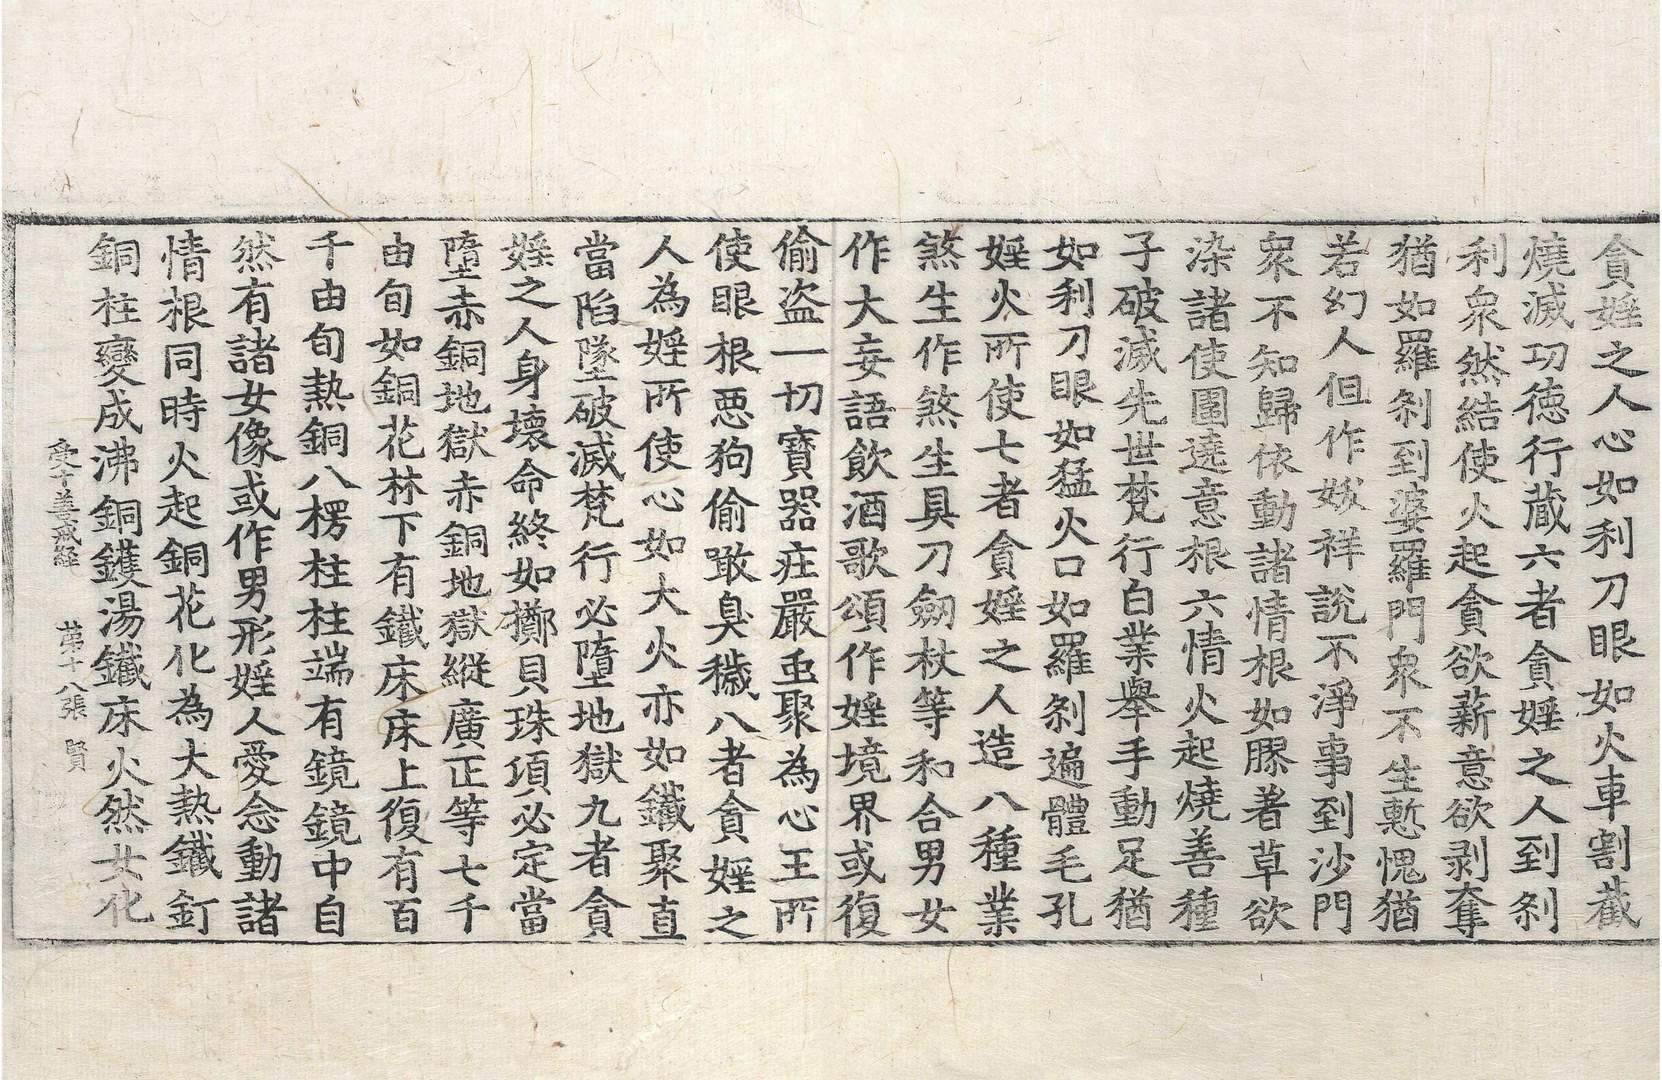 貪婬之人心如利刀眼如火車割截
燒滅功徳行藏六者貪婬之人到刹
利衆然結使火起貪欲薪意欲剥奪
猶如羅刹到婆羅門衆不生慙愧猶
若幻人但作妖祥說不淨事到沙門
衆不知歸依動諸情根如豚著草欲
染諸使圍遶意根六情火起燒善種
子破滅先世梵行白業舉手動足猶
如利刀眼如猛火口如羅刹遍體毛孔
婬火所使七者貪婬之人造八種業
煞生作煞生具刀劒杖等和合男女
作大妄語飲酒歌頌作婬境界或復
偷盗一切寶器疰嚴𠁅聚為心王所
使眼根惡狗偷噉臭穢八者貪婬之
人為婬所使心如大火亦如鐵聚直
當陷墜破滅梵行必墮地獄九者貪
婬之人身壞命終如擲貝珠項必定當
墮赤銅地獄赤銅地獄縱廣正等七千
由旬如銅花林下有鐵床床上復有百
千由旬熱銅八楞柱柱端有鏡鏡中自
然有諸女像或作男形婬人愛念動諸
情根同時火起銅花化為大熱鐵釘
銅柱變成沸銅鑊湯鐵床火然女化
受十善戒経 第十八張 賢